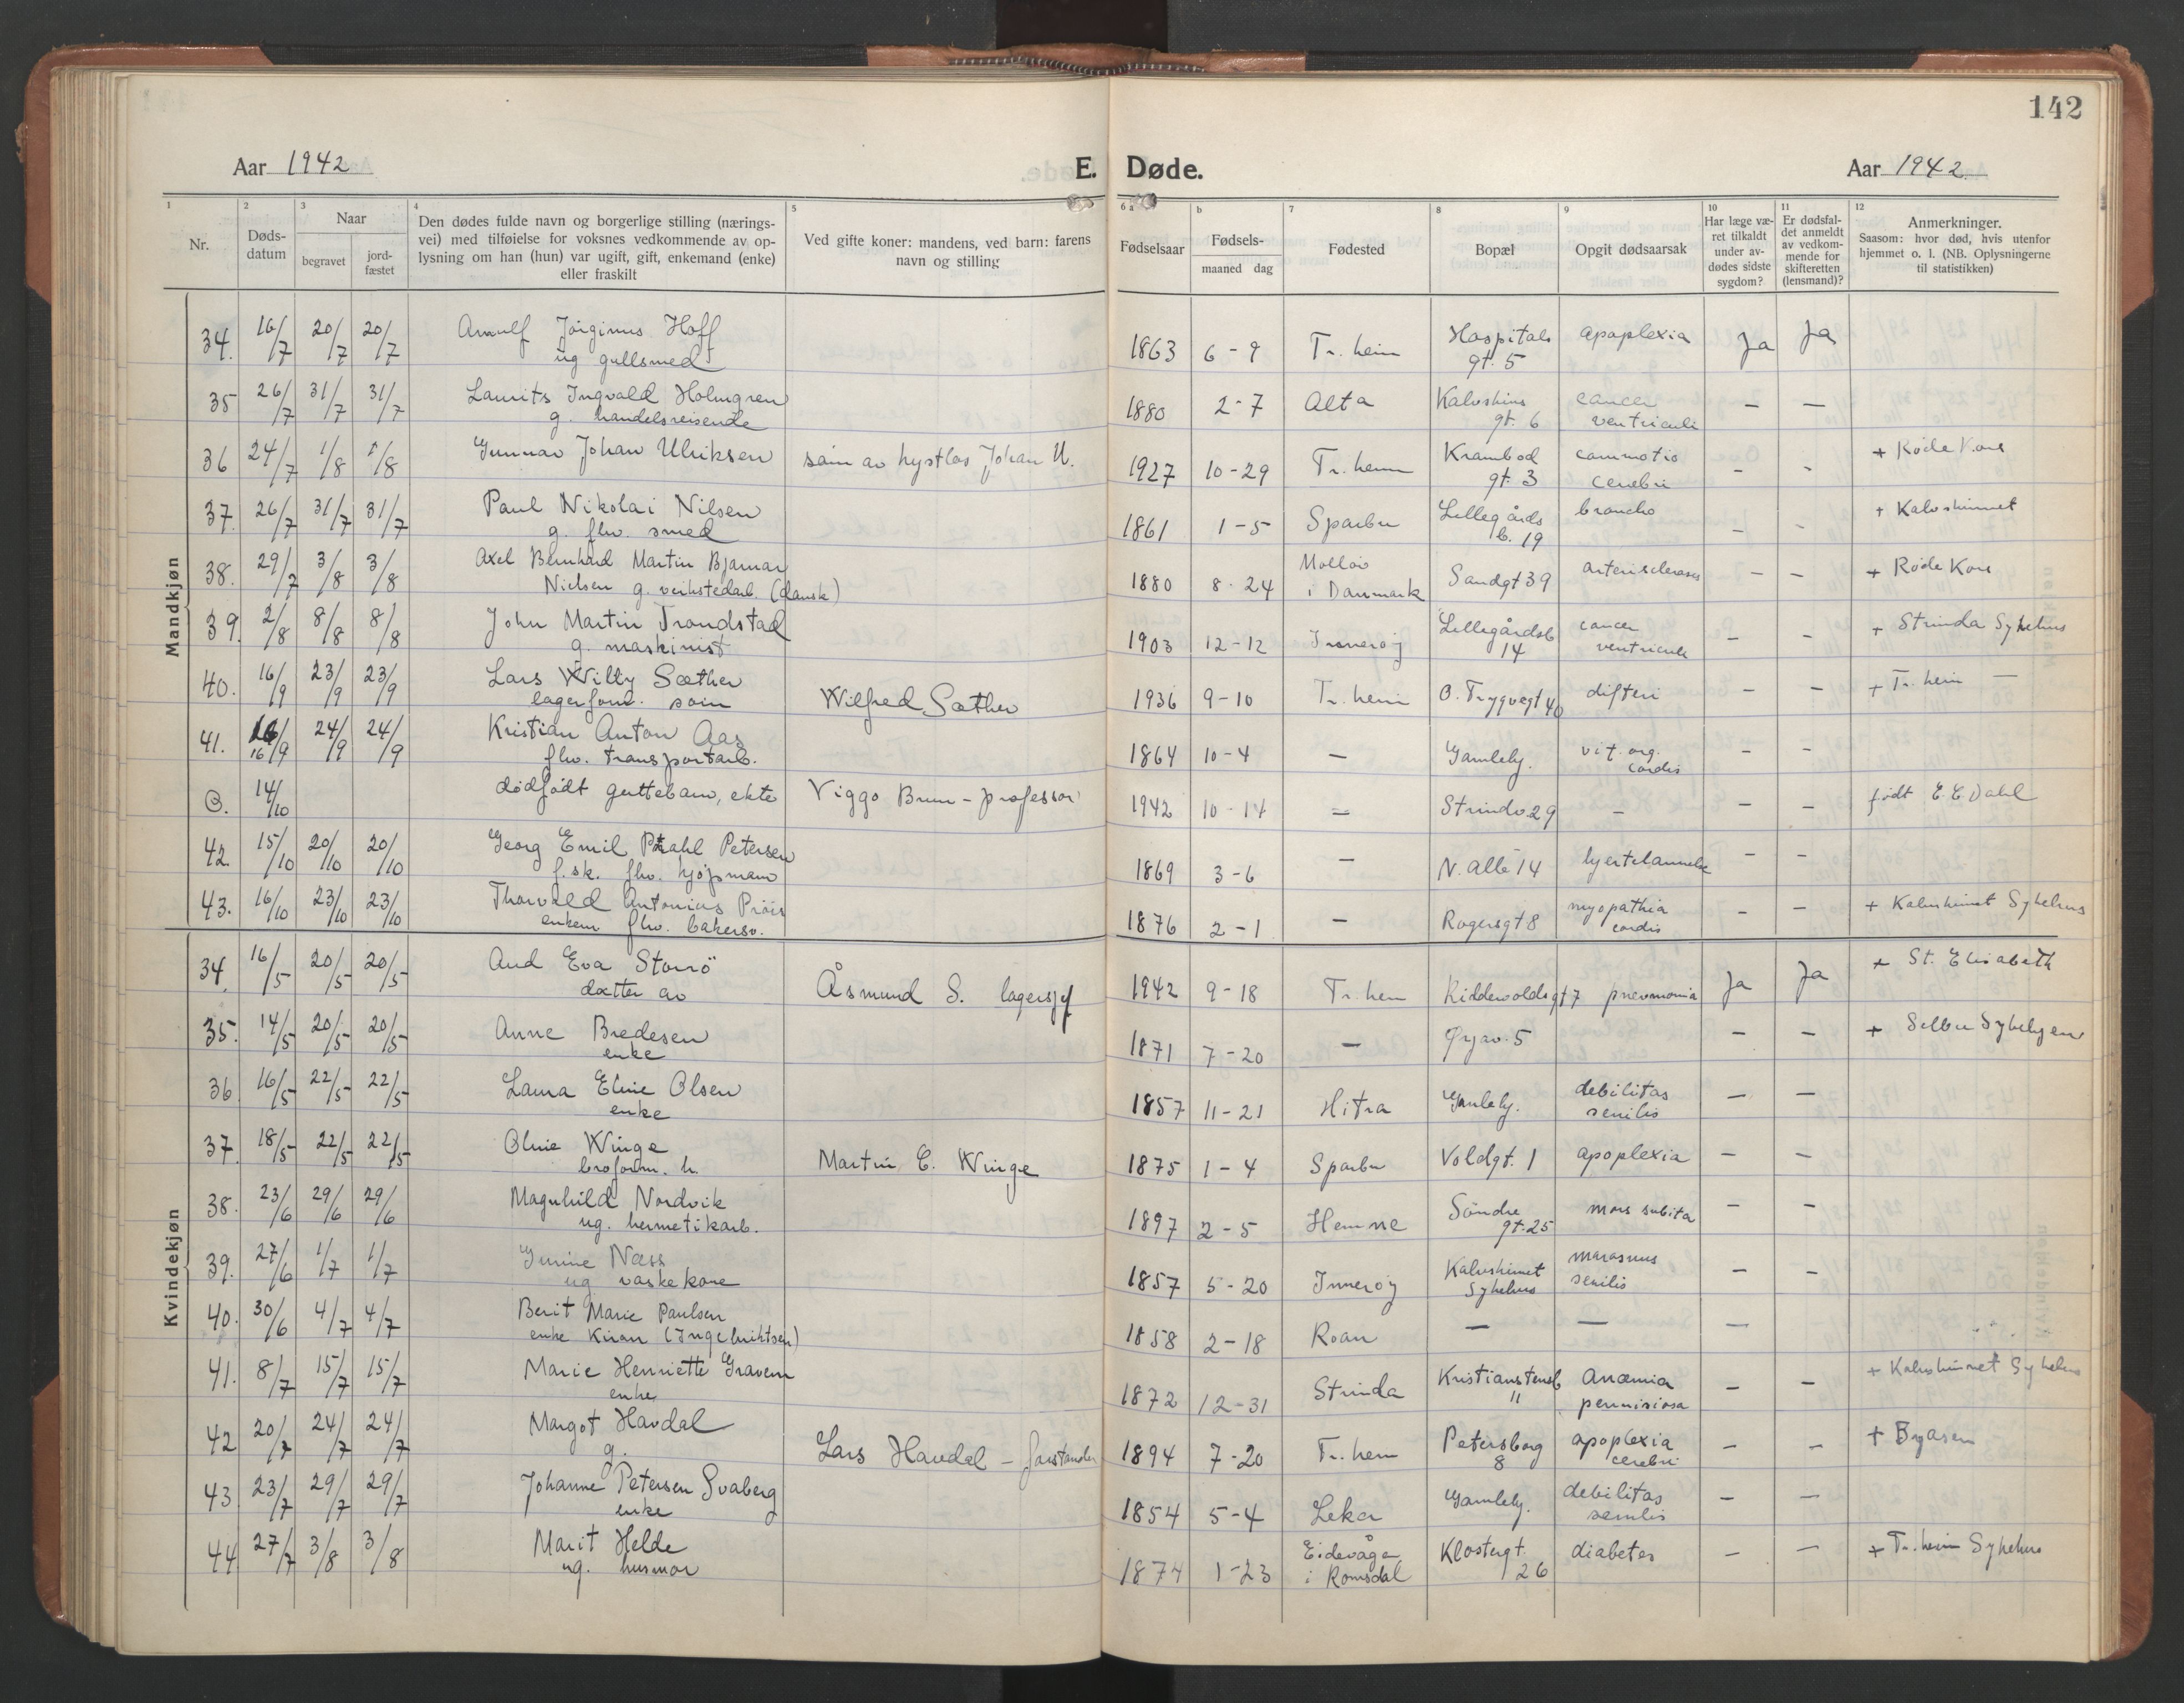 142
Aar 1942 E. Døde. Aar 1942
1 2 3 4 5 6 a b 7 8 9 10 11 12
Nr.
Døds-
datum
Naar
begravet
jord-
fæstet
Den dødes fulde navn og borgerlige stilling (nærings-
vei) med tilføielse for voksnes vedkommende av op-
lysning om han (hun) var ugift, gift, enkemand (enke)
eller fraskilt
Ved gifte koner: mandens, ved barn: farens
navn og stilling
Fødselsaar
Fødsels-
maaned dag
Fødested
Bopæl
Opgit dødsaarsak
Har læge væ-
ret tilkaldt
under av-
dødes sidste
sygdom?
Er dødsfal-
det anmeldt
av vedkom-
mende for
skifteretten
(lensmand)?
Anmerkninger.
Saasom: hvor død, hvis utenfor
hjemmet o. l. (NB. Oplysningerne
til statistikken)
Mandkjøn
34. 16/7 20/7 20/7 Jörginus Hoff 1863 6-9 Tr.heim Hospitals apoplexia Ja Ja
ug gullsmed gt. 5
35 26/7 31/7 31/7 Laurits Ingvald Holmgren 1880 2-7 Alta Kalvskins cancer — —
g. handelsreisende gt. 6 ventriculi
36 24/7 1/8 1/8 Gunnar Johan Ulriksen sönn av Johan U. 1927 10-29 Tr.heim Krambod commotio - - + Röde Kors
gt. 3 cerebri
37. 26/7 31/7 31/7 Paul Nikolai Nilsen 1861 1-5 Sparbu Lillegårds broncho - - + Kalvskinnet
g. fhv. smed b. 19
38. 29/7 3/8 3/8 Axel Bernhard Martin Bjarnar 1880 8-24 i Danmark Sandgt 39 — — + Röde Kors
Nielsen g. verkstedarb. (dansk)
39. 2/8 8/8 8/8 John Martin Trondstad 1903 12-12 Inneröy Lillegårdsb cancer - - + Strinda Sykehus
g. maskinist 14 ventriculi
40. 16/9 23/9 23/9 Lars Willy Sæther Wilfred Sæther 1936 9-10 Tr.heim O. Trygvegt 40 difteri - - + Tr.heim —
lagerform. sönn
41. 16/9 24/9 24/9 Kristian Anton Aas 1864 10-4 — Gamleby. vit. org. - -
fhv. transportarb. cordis
B. 14/10 dödfödt guttebarn, ekte Viggo Brun - professor 1942 10-14 = Strindv. 29 - - - födt E C Dahl
42. 15/10 20/10 20/10 Georg Emil Petersen 1869 3-6 — N. allé 14 - -
f.sk. fhv. kjöpmann
43. 16/10 23/10 23/10 Thorvald Antonius 1876 2-1 — Rogersgt 8 myopathia - - + Kalvskinnet Sykehus
enkem fhv. bakersv. cordis
Kvindekjøn
34. 16/5 20/5 20/5 Aud Eva Storrö Åsmund S. lagersjef 1942 9-18 Tr.heim Ridderwoldsgt 7 pneumonia Ja Ja + St. Elisabeth
datter av
35. 14/5 20/5 20/5 Anne Bredesen 1871 7-20 — Öyav. 5 - - + Selbu Sykehjem
enke
36 16/5 22/5 22/5 Laura Eline Olsen 1857 11-21 Hitra Gamleby. debilitas — —
enke senilis
37. 18/5 22/5 22/5 Oline Winge Martin C. Winge 1875 1-4 Sparbu Voldgt. 1 apoplexia — —
broform. h.
38. 23/6 29/6 29/6 Magnhild Nordvik 1897 2-5 Hemne Söndre mors subita - -
ug. hermetikarb. gt. 25
39. 27/6 1/7 1/7 Gurine Næss 1857 5-20 Inneröy Kalvskinnet marasmus - -
ug vaskekone Sykehus senilis
40. 30/6 4/7 4/7 Berit Marie Paulsen 1858 2-18 Roan — — —
enke Kiran (Ingebriktsen)
41. 8/7 15/7 15/7 Marie Henriette Gravem 1872 12-31 Strinda Kristianstensb Anæmia - - + Kalvskinnet Sykehus
enke 11 pernisiosa
42 20/7 24/7 24/7 Margot Havdal Lars Havdal - forstander 1894 7-20 Tr.heim Petersborg apoplexia - - + Byåsen
g. 8 cerebri
43 23/7 29/7 29/7 Johanne Petersen Svaberg 1854 5-4 Leka Gamleby. debilitas - —
enke senilis
44 27/7 3/8 3/8 Marit Helde 1874 1-23 Eidsvåge Klostergt. diabetes - - + Tr.heim Sykehus
ug. husmor i Romsdal 26